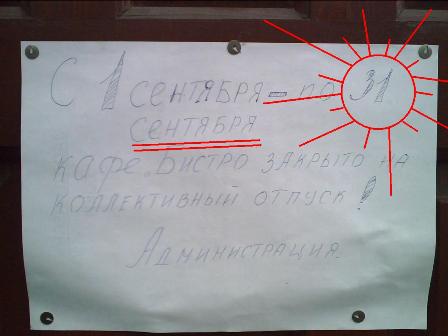 С 1 СЕНТЯБРЯ - ПО 31
СЕНТЯБРЯ
КАФЕ. БИСТРО ЗАКРЫТО НА
КОЛЛЕКТИВНЫЙ ОТПУСК!
АДМИНИСТРАЦИЯ.